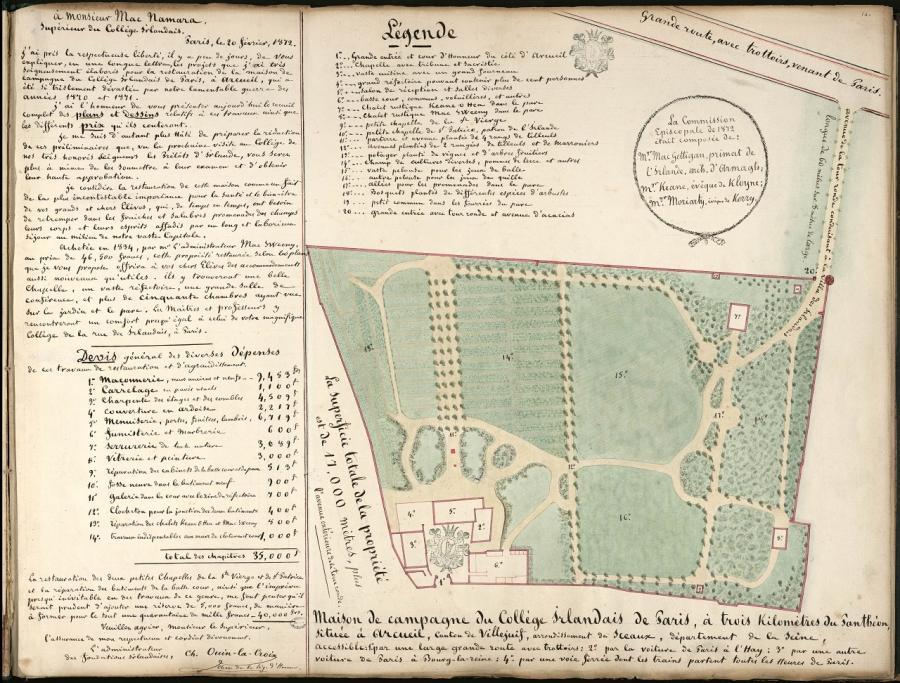 à Monsieur Mac Namara,
Supérieur du Collège Irlandais.
Paris, le 20 février, 1872.
J'ai pris la respectueuse liberté, il y a peu de jours, de vous
expliquer, en une longue lettre, les projets que j'ai très
soigneusement élaborés pour la restauration de la maison de
campagne du Collège Irlandais de Paris, à Arcueil, qui a
été si tristement dévastée par notre lamentable guerre des
années 1870 et 1871.
J'ai l'honneur de vous présenter aujourd'hui le recueil
complet des plans et dessins relatifs à ces travaux ainsi que
les différents prix qu'ils coûteront.
Je me suis d'autant plus hâté de préparer la rédaction
de ces préliminaires que, vu la prochaine visite au Collège de
nos très honorés Seigneurs les Prélats d'Irlande, vous serez
plus à même de les soumettre à leur examen et d'obtenir
leur haute approbation.
Je considère la restauration de cette maison comme un fait
de la plus incontestable importance pour la santé et le bien-être
de vos grands et chers Élèves, qui, de temps en temps, ont besoin
de retremper dans les fraîches et salubres promenades des champs
leurs corps et leurs esprits affadis par un long et laborieux
séjour au milieu de notre vaste Capitale.
Achetée en 1834, par Mr l'administrateur Mac Sweeny,
au prix de 46,500 francs, cette propriété restaurée selon les plans
que je vous propose offrira à vos chers Élèves des accommodements
aussi nouveaux qu'utiles. Ils y trouveront une belle
Chapelle, un vaste réfectoire, une grande salle de
conférence, et plus de cinquante chambres ayant vue
sur le jardin et le parc. Les Maîtres et professeurs y
rencontreront un comfort presqu'égal à celui de votre magnifique
Collège de la rue des Irlandais, à Paris.
Devis général des diverses Dépenses
de ces travaux de restauration et d'agrandissement.
1° Maçonnerie, murs anciens et neufs 9,483 frs
2° Carrelage en pavés neufs 1,100 f
3° Charpente des étages et des combles 4,509 f
4° Couverture en ardoise 2,217 f
5° Menuiserie, portes, fenêtres, lambris, 6,719 f
6° Fumisterie et Marbrerie 600 f
7° Serrurerie de toute nature 3,659 f
8° Vitrerie et peinture 3,000 f
9° Réparation des cabinets de la basse cour et du parc 513 f
10° Fosse neuve dans le bâtiment neuf 900 f
11° Galerie dans la cour avec le zinc du réfectoire 700 f
12° Clocheton pour la jonction des deux bâtiments 400 f
13° Réparation des chalets Keane O Hea et Mac Sweeny 800 f
14° Travaux indispensables aux murs de clôture 1,000 f
total des chapitres 35,000 f
La restauration des deux petites Chapelles de la Ste Vierge et de St Patrice
et la réparation des bâtiments de la basse cour, ainsi que l'imprévu
presqu'inévitable en des travaux de ce genre, me font penser qu'il
serait prudent d'ajouter une réserve de 5,000 francs, de manière
à former pour le tout une quarantaine de mille francs — 40,000 frs.
Veuillez agréer, Monsieur le Supérieur,
l'assurance de mon respectueux et cordial dévouement.
L'administrateur
des fondations irlandaises, Ch. Ouin-la-Croix
Légende
1°... Grande entrée et cour d'Honneur du côté d'Arcueil
2°... Chapelle avec tribune et sacristie
3°... vaste cuisine avec un grand fourneau
4°... grand réfectoire pouvant contenir plus de cent personnes
5°... salon de réception et salles diverses
6°... basse cour, communs, volailières, et autres
7°... Chalet rustique Keane O Hea dans le parc
8°... Chalet rustique Mac Sweeny dans le parc
9°... petite chapelle de la Ste Vierge
10°... petite chapelle de St Patrice, patron de l'Irlande
11°... parterre, et avenue plantée de 4 rangs de tilleuls
12°... avenues plantées de 2 rangées de tilleuls et de marronniers
13°... potager planté de vignes et d'arbres fruitiers
14°... Champ de cultures diverses, pommes de terre et autres
15°... vaste pelouse pour les jeux de balle
16°... autre pelouse pour les jeux de quille
17°... allées pour les promenades dans le parc
18°... Bosquets plantés de différentes espèces d'arbustes
19... petit commun dans les fourrés du parc
20... grande entrée avec tour ronde et avenue d'acacias
Grande route, avec trottoirs, venant de Paris.
La Commission
Épiscopale de 1872
était composée de:
Mr Mac Gettigan, primat de
l'Irlande, arch. d'Armagh;
Mr Keane, évêque de Kloyne;
Mr Moriarty, évêque de Kerry.
20°
7°
13°
14°
15°
17°
18°
12°
11°
16°
4°
5°
2°
3°
1°
6°
8°
La superficie totale de la propriété
est de 17,000 mètres, plus
Maison de campagne du Collège Irlandais de Paris, à trois Kilomètres du Panthéon,
située à Arcueil, canton de Villejuif, arrondissement de Sceaux, département de la Seine,
accessible: 1° par une large grande route avec trottoirs: 2° par la voiture de Paris à l'Hay: 3° par une autre
voiture de Paris à Bourg-la-reine: 4° par une voie ferrée dont les trains partent toutes les Heures de Paris.